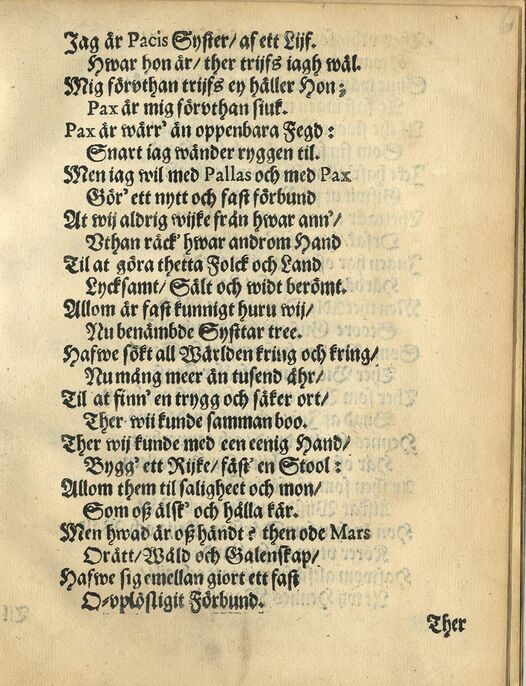 Jag är Pacis Syster/ af ett Lijf.
Hwar hon är/ ther trijfs iagh wäl.
Mig förvthan trijfs ey häller Hon;
Pax är mig förvthan siuk.
Pax är wärr' än oppenbara Fegd:
Snart iag wänder ryggen til.
Men iag wil med Pallas och med Pax
Gör' ett nytt och fast förbund
At wij aldrig wijke från hwar ann'/
Vthan räck' hwar androm Hand
Til at göra thetta Folck och Land
Lycksamt/ Sält och widt berömt.
Allom är fast kunnigt huru wij/
Nu benämbde Systtar tree.
Hafwe sökt all Wärlden kring och kring/
Nu mång meer än tusend åhr/
Til at finn' en trygg och säker ort/
Ther wii kunde samman boo.
Ther wij kunde med een eenig Hand/
Bygg' ett Rijke/ fäst' en Stool:
Allom them til saligheet och mon/
Som oß älsk' och hålla kär.
Men hwad är oß händt? then ode Mars
Orätt/ Wåld och Galenskap/
Hafwe sig emellan giort ett fast
O-vplösligit Förbund.
Ther